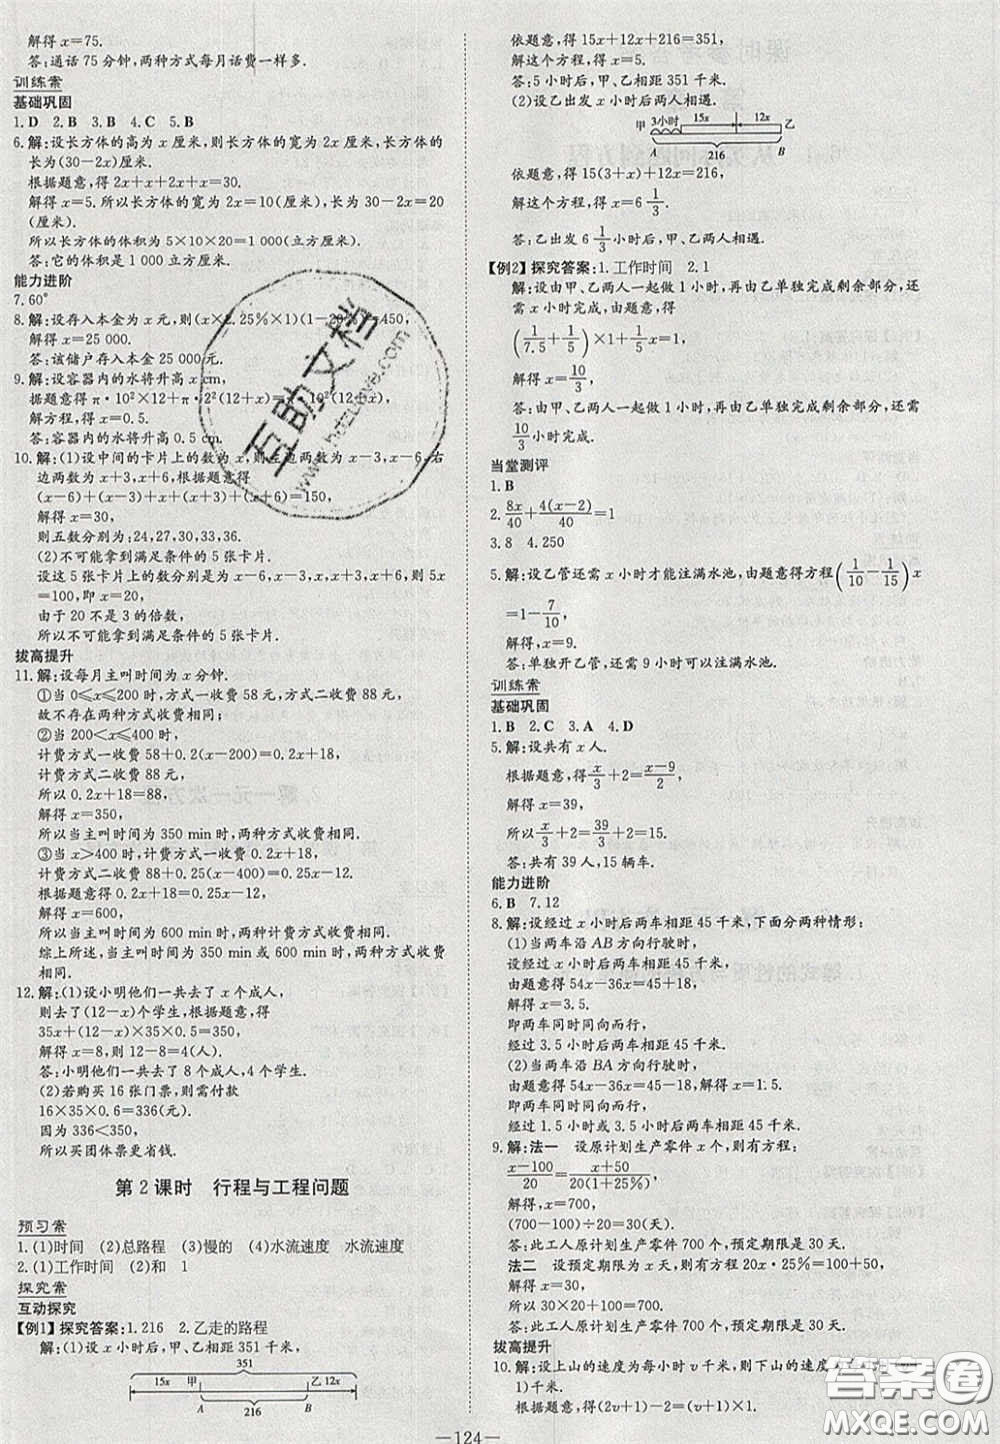 解得x=75.
答:通话75分钟,两种方式每月话费一样多.
训练案
基础巩固
1.D 2.B 3.B 4.C 5.B
6.解:设长方体的高为x厘米,则长方体的宽为2x厘米,长方体的
长为(30-2x)厘米.
根据题意,得2x+x+2x+x=30.
解得x=5.所以长方体的宽为2x=10(厘米),长为30-2x=20
(厘米).
所以长方体的体积为5×10×20=1 000(立方厘米).
答:它的体积是1 000立方厘米.
能力进阶
7.60°
8.解:设存入本金为x元,则(x×2.25%×1)(1-20%)=450,
解得x=25 000.
答:该储户存入本金25 000元.
9.解:设容器内的水将升高x cm,
据题意得π·10²×12+π·2²(12+x)=π·10²(12+x),
解方程,得x=0.5.
答:容器内的水将升高0.5 cm.
10.解:(1)设中间的卡片上的数为x,则左边两数为x-3,x-6,右
边两数为x+3,x+6,根据题意得
(x-6)+(x-3)+x+(x+3)+(x+6)=150,
解得x=30,
则五数分别为:24,27,30,33,36.
(2)不可能拿到满足条件的5张卡片.
设这5张卡片上的数分别是为x-6,x-3,x,x+3,x+6,则5x
=100,即x=20,
由于20不是3的倍数,
所以不可能拿到满足条件的5张卡片.
拔高提升
11.解:设每月主叫时间为x分钟.
①当0≤x≤200时,方式一收费58元,方式二收费88元,
故不存在两种方式收费相同;
②当200<x≤400时,
计费方式一收费58+0.2(x-200)=0.2x+18,
计费方式二收费88元,
所以0.2x+18=88,
解得x=350,
所以当主叫时间为350 min时,两种方式收费相同.
③当x>400时,计费方式一收费为0.2x+18,
计费方式二收费为88+0.25(x-400)=0.25x-12.
根据题意得0.2x+18=0.25x-12.
解得x=600,
所以当主叫时间为600 min时,两种计费方式收费相同.
综上所述,当主叫时间为350 min或600 min时,两种方式收费
相同.
12.解:(1)设小明他们一共去了x个成人,
则去了(12-x)个学生,根据题意得
35x+(12-x)×35×0.5=350,
解得x=8,则12-8=4(人).
答:小明他们一共去了8个成人,4个学生.
(2)若购买16张门票,则需付款
16×35×0.6=336(元).
因为336<350,
所以买团体票更省钱.
第2课时 行程与工程问题
预习案
1.(1)时间 (2)总路程 (3)慢的 (4)水流速度 水流速度
2.(1)工作时间 (2)和 1
探究案
互动探究
【例1】探究答案:1.216 2.乙走的路程
解:(1)设x小时后,甲、乙相距351千米.
351
15x 甲 乙 12x
A 216 B
依题意,得15x+12x+216=351,
解这个方程,得x=5.
答:5小时后,甲、乙相距351千米.
(2)设乙出发x小时后两人相遇.
15x 12x
甲 3小时 乙
A 216 B
依题意,得15(3+x)+12x=216,
解这个方程,得x=6 1/3.
答:乙出发6 1/3小时后,甲、乙两人相遇.
【例2】探究答案:1.工作时间 2.1
解:设由甲、乙两人一起做1小时,再由乙单独完成剩余部分,还
需x小时完成,由题意,得
(1/7.5+1/5)×1+1/5x=1,
解得x=10/3.
答:由甲、乙两人一起做1小时,再由乙单独完成剩余部分,还需
10/3小时完成.
当堂测评
1.B
2.8x/40+4(x-2)/40=1
3.8 4.250
5.解:设乙管还需x小时才能注满水池,由题意得方程(1/10-1/15)x
=1-7/10,
解得,x=9.
答:单独开乙管,还需9小时可以注满水池.
训练案
基础巩固
1.B 2.C 3.A 4.D
5.解:设共有x人.
根据题意,得x/3+2=(x-9)/2,
解得x=39,
所以x/3+2=39/3+2=15.
答:共有39人,15辆车.
能力进阶
6.B 7.12
8.解:设经过x小时后两车相距45千米,下面分两种情形:
(1)当两车沿AB方向行驶时,
设经过x小时后两车相距45千米,
由题意得54x-36x=45+18,解得x=3.5,
即两车同时同向而行,
经过3.5小时后两车相距45千米.
(2)当两车沿BA方向行驶时,
由题意得54x-36x=45-18,解得x=1.5,
即两车同时同向而行,
经过1.5小时或3.5小时后两车相距45千米.
9.解:法一 设原计划生产零件x个,则有方程:
(x-100)/20=(x+50)/20(1+25%),
解得x=700,
(700-100)÷20=30(天).
答:此工人原计划生产零件700个,预定期限是30天.
法二 设预定期限为x天,则有方程20x·25%=100+50,
解得x=30,
所以30×20+100=700(个).
答:此工人原计划生产零件700个,预定期限为30天.
拔高提升
10.解:设上山的速度为每小时v千米,则下山的速度为
1)千米.
根据题意,得(2v+1)=v+2,
—124—
互助文档
www.hdzuoye.com
答案圈
MXQE.COM